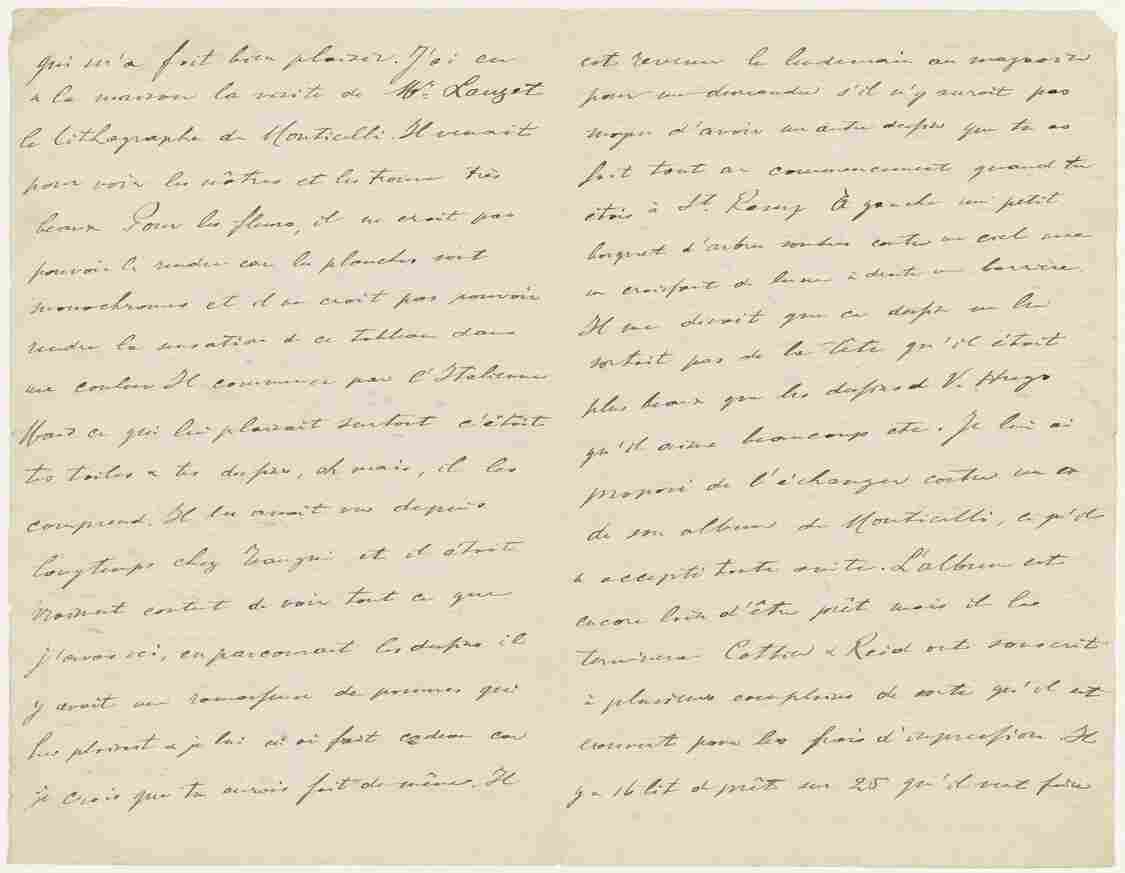 qui m'a fait bien plaisir. J'ai eu
à la maison la visite de Mr. Lauzet
le lithographe de Monticelli. Il venait
pour voir les nôtres et les trouve très
beaux Pour les fleurs, il ne croit pas
pouvoir le rendre car les planches sont
monochromes et il ne croit pas pouvoir
rendre la sensation de ce tableau dans
une couleur Il commence par l'Italienne
Mais ce qui lui plaisait surtout c'était
tes toiles & tes dessins, ah mais, il les
comprend. Il les avait vu depuis
longtemps chez Tangui et il était
vraiment content de voir tout ce que
j'avais ici, en parcourant les dessins il
y avait une ramasseuse de pommes qui
lui plaisait & je lui en ai fait cadeau car
je crois que tu aurais fait de même. Il
est revenu le lendemain au magasin
pour me demander s'il n'y aurait pas
moyen d'avoir un autre dessin que tu as
fait tout au commencement quand tu
étais à St. Remy À gauche un petit
bosquet d'arbres sombres contre un ciel avec
un croissant de lune à droite une barrière.
Il me disait que ce dessin ne lui
sortait pas de la tête qu'il était
plus beaux que les dessins d V. Hugo
qu'il aime beaucoup etc. Je lui ai
proposé de l'échanger contre un ex
de son album de Monticelli, ce qu'il
a accepté toute suite. L'album est
encore loin d'être prêt mais il les
terminera Cottier & Reid ont souscrit
à plusieurs exemplaires de sorte qu'il est
couvert pour les frais d'impression. Il
y a 16 lit d prêt sur 25 qu'il veut faire